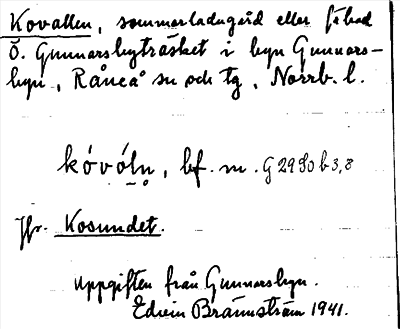 Kovallen, sommarladugård eller fäbod
Ö. Gunnarsbyträsket i byn Gunnars-
byn, Råneå sn och tg, Norrb. l.
kóvóln, bf. m. G 2980 b 3,8
Jfr. Kosundet.
Uppgiften från Gunnarsbyn.
Edvin Brännström 1941.